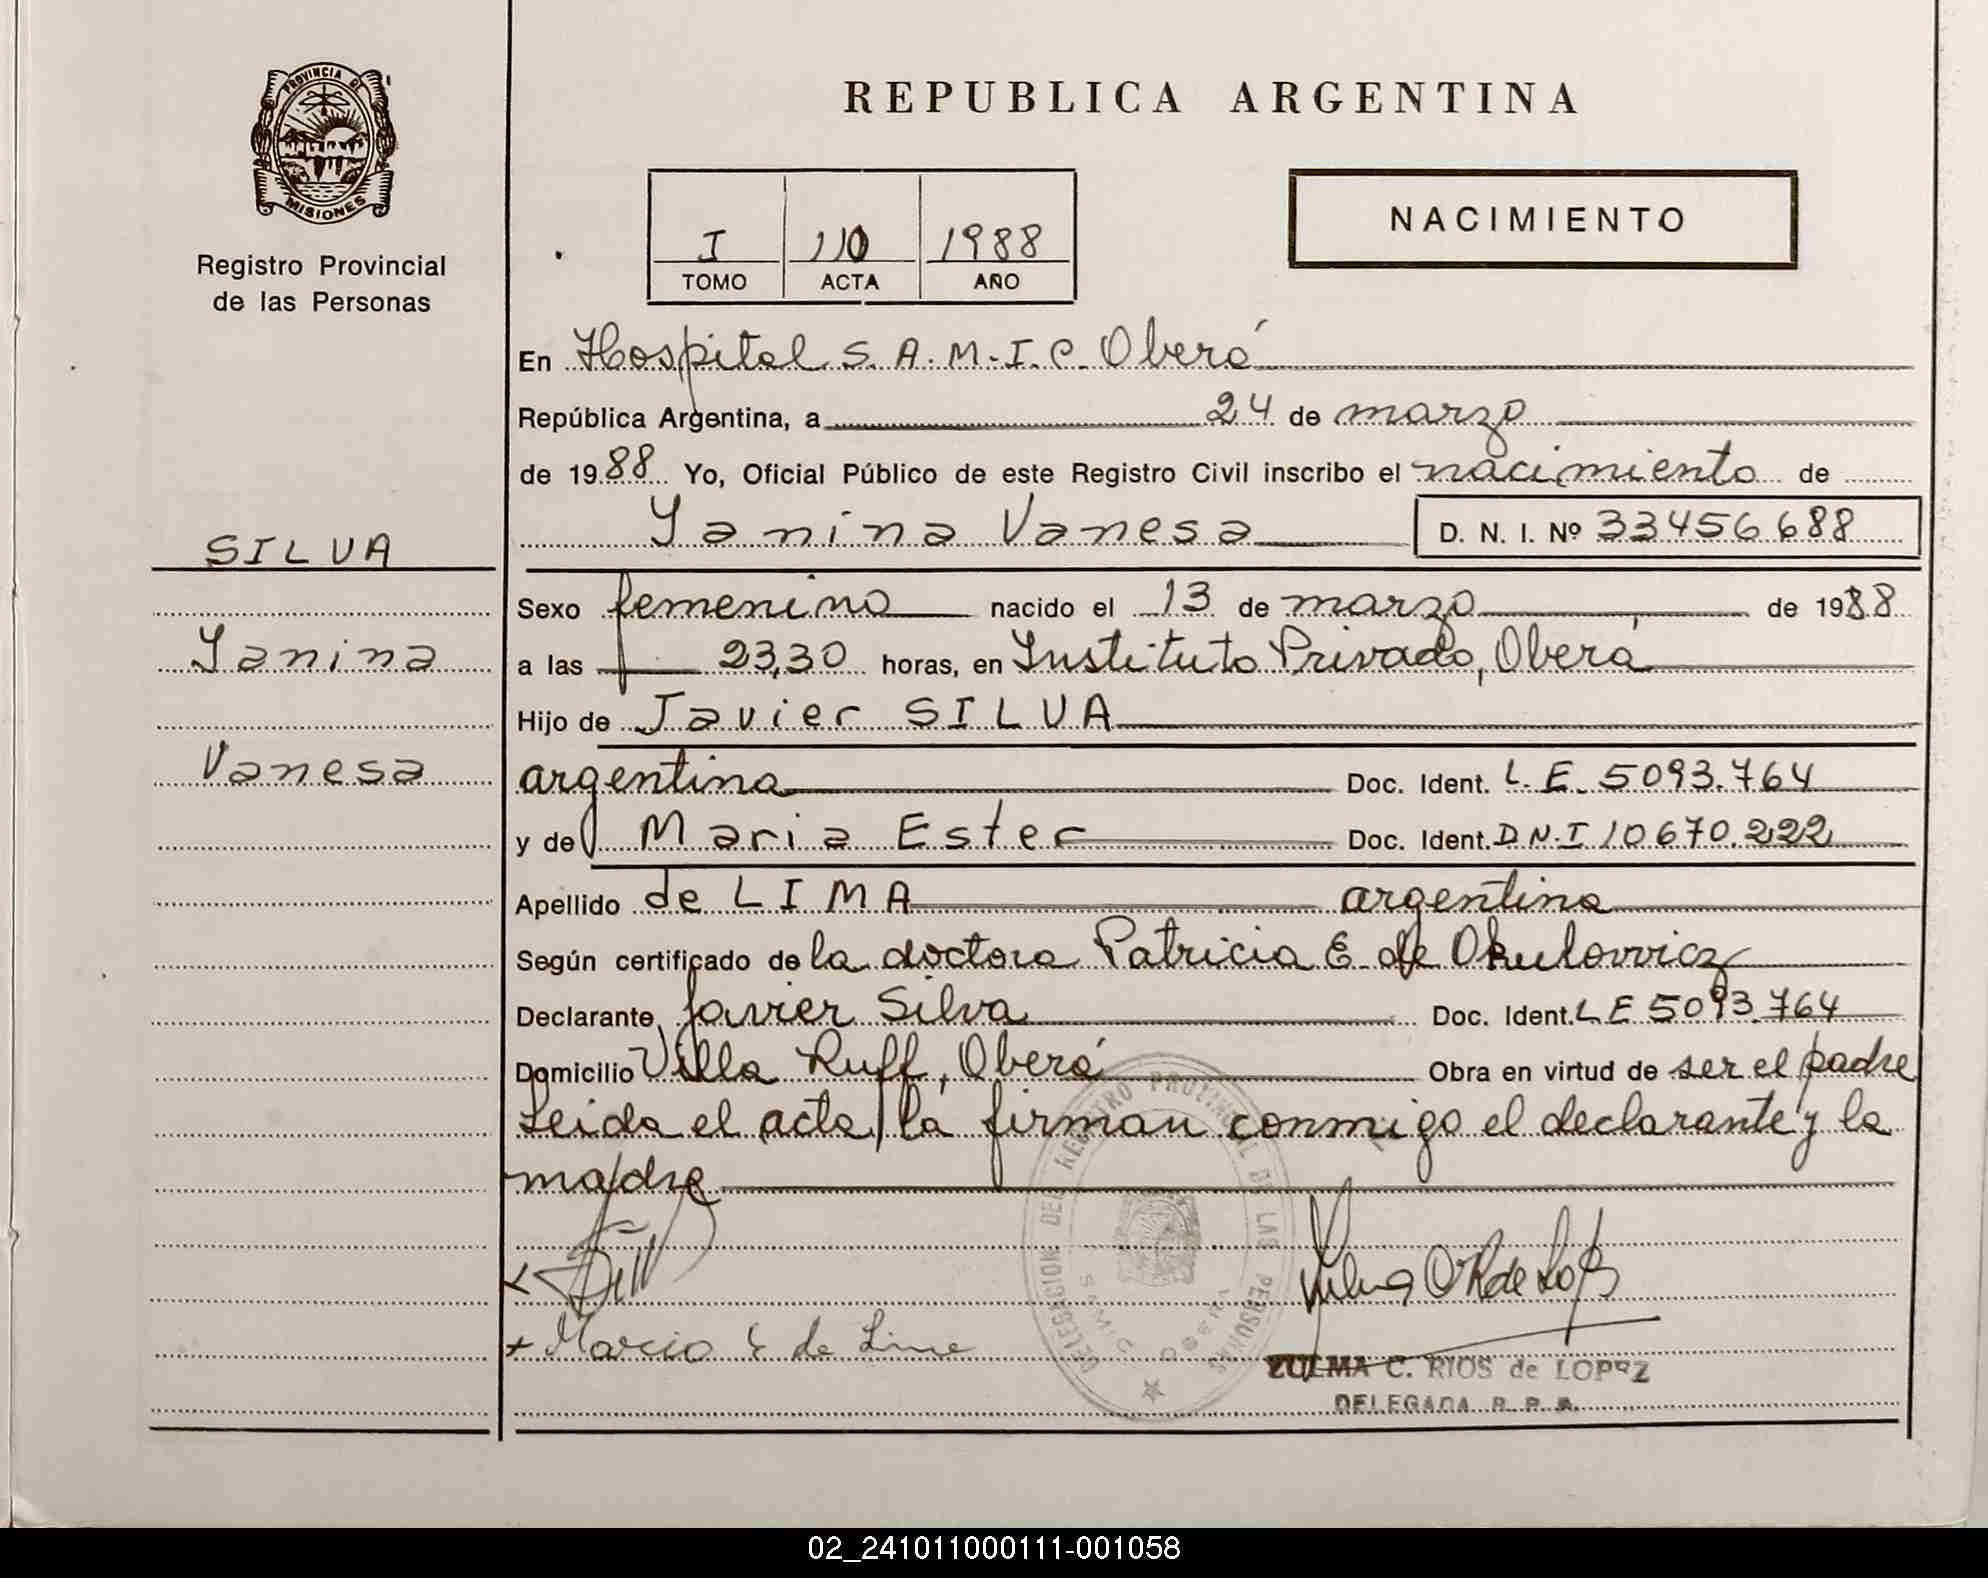 PROVINCIA DE
MISIONES
Registro Provincial
de las Personas
REPUBLICA ARGENTINA
I 110 1988
TOMO ACTA AÑO
NACIMIENTO
En Hospital S.A.M.I.C. Oberá
República Argentina, a 24 de marzo
de 1988 Yo, Oficial Público de este Registro Civil inscribo el nacimiento de
Yanina Vanesa D. N. I. Nº 33456688
SILVA
Sexo femenino nacido el 13 de marzo de 1988
Yanina
a las 23,30 horas, en Instituto Privado, Oberá
Hijo de Javier SILVA
Vanesa
argentina Doc. Ident. L.E. 5093.764
y de Maria Ester Doc. Ident. D.N.I 10670.222
Apellido de LIMA argentina
Según certificado de la doctora Patricia E. de Okulovvicz
Declarante Javier Silva Doc. Ident. L E 5093.764
Domicilio Villa Ruff, Oberá Obra en virtud de ser el padre
Leida el acta, la firman conmigo el declarante y la
madre
DELEGACION DEL REGISTRO PROVINCIAL DE LAS PERSONAS
OBERA
de Lima
ZULMA C. RIOS de LOPEZ
DELEGADA R. P. P.
02_241011000111-001058